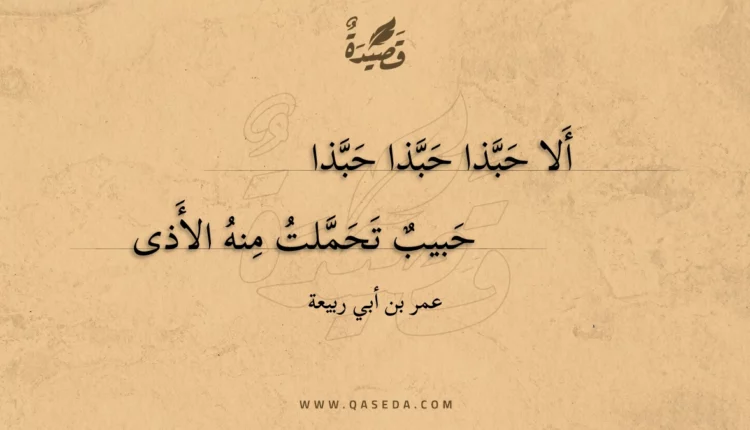 قَصِيْدَةٌ
أَلا حَبَّذا حَبَّذا حَبَّذا
حَبيبٌ تَحَمَّلتُ مِنهُ الأَذى
عمر بن أبي ربيعة
WWW.QASEDA.COM